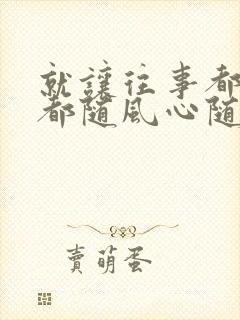 就讓往事都
都隨風心隨
賣萌蛋